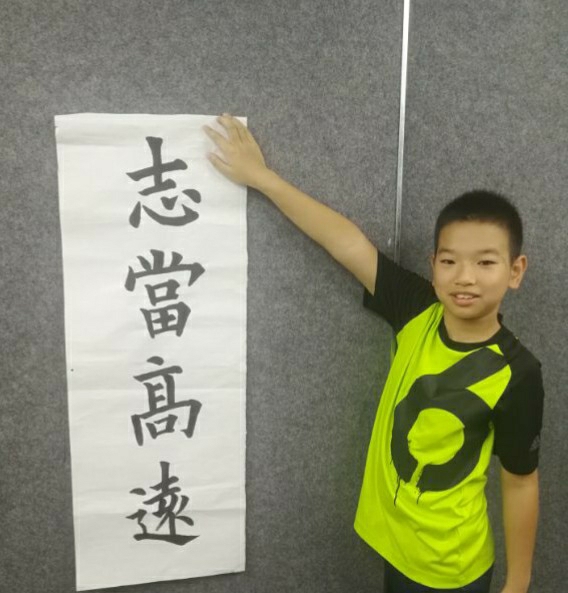 志當高遠
6